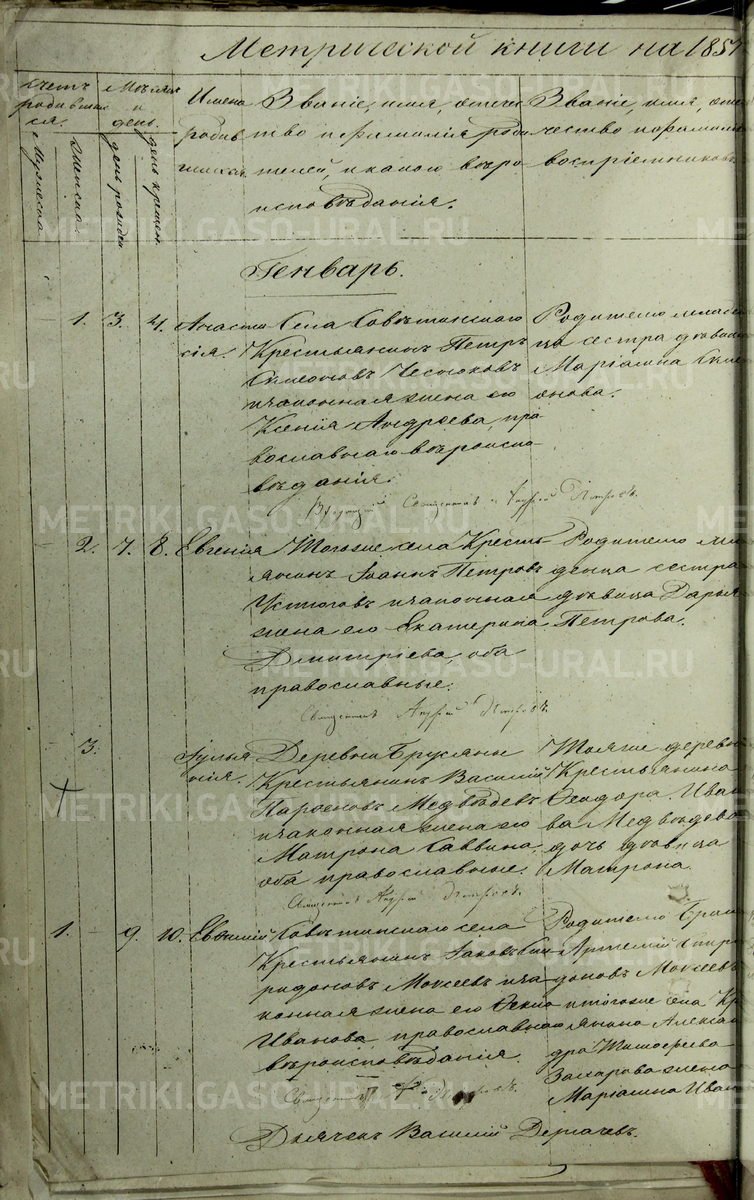 Метрической книги на 1857
Счетъ родившихся.
Мѣсяцъ и день.
Имена родившихся.
Званіе, имя, отечество и фамилія родителей, и какого вѣроисповѣданія.
Званіе, имя, отечество и фамилія воспріемниковъ
Мужеска.
Женска.
день рожден.
день крещен.
Генварь.
1. 3. 4. Анастасія.
Села Совѣтинскаго
Крестьянинъ Петръ
Симоновъ
и законная жена его
Ксенія Андреева, православнаго вѣроисповѣданія.
Родителю младенца сестра дѣвица
Маріамна Симеонова.
Священникъ Андрей Петровъ.
2. 7. 8. Евгенія
Тогоже села Крестьянинъ Іоаннъ Петровъ
Устюговъ и законная
жена его Екатерина
Димитріева, оба
православные.
Родителю младенца сестра
дѣвица Дарья
Петрова.
Священникъ Андрей Петровъ.
3. Іуліанія.
Деревни Брусяны
Крестьянинъ Василій
Парѳеновъ Медвѣдевъ
и законная жена его
Матрона Саввина,
оба православные.
Тояже деревни
Крестьянина
Ѳеодора Иванова Медвѣдева
дочь дѣвица
Матрона.
Священникъ Андрей Петровъ.
1. 9. 10. Евѳимій
Совѣтинскаго села
Крестьянинъ Іаковъ Спиридоновъ Мокеевъ и законная жена его Ѳекла
Иванова, православнаго
вѣроисповѣданія.
Родителю братъ
Артемій Спиридоновъ Мокеевъ
и тогоже села Крестьянина Александра Тимофеева
Захарова жена
Маріамна Иван
Священникъ Петровъ.
Дьячекъ Василій Дергачевъ.
METRIKI.GASO-URAL.RU